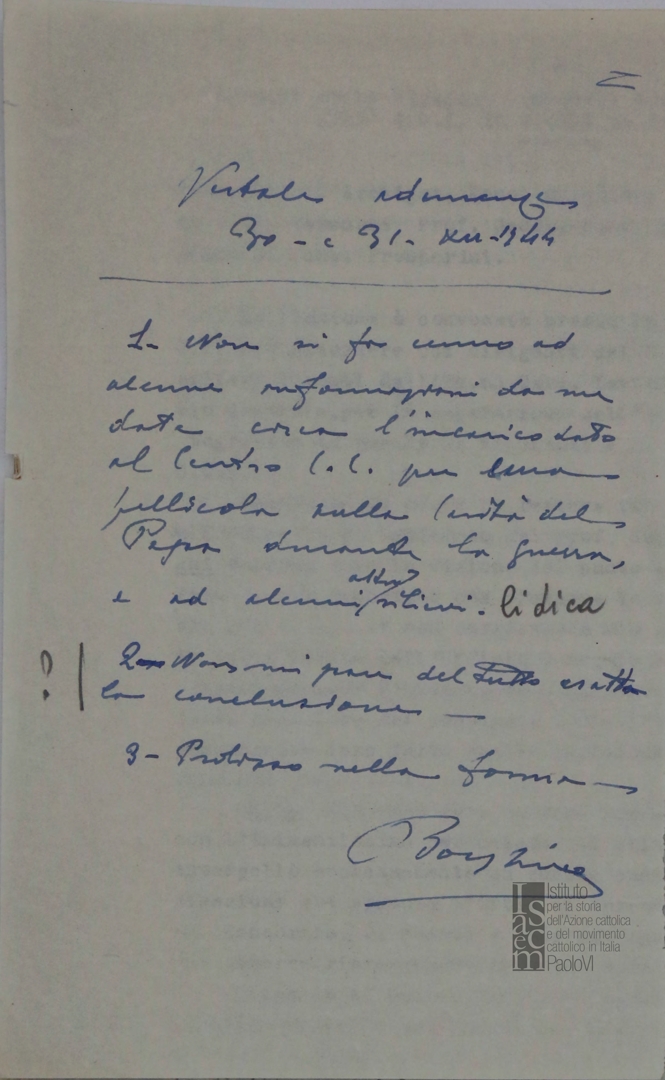 Verbale adunanza
30 - e 31 - XII - 1944
1 - Non si fa cenno ad
alcune informazioni da me
date circa l'incarico dato
al Centro C.C. per una
pellicola sulla Carità del
Papa durante la guerra,
e ad alcuni altri rilievi. li dica
? 2 - Non mi pare del tutto esatta
la conclusione —
3 - Prolisso nella forma —
Istituto
per la storia
dell'Azione cattolica
e del movimento
cattolico in Italia
PaoloVI
Isacem